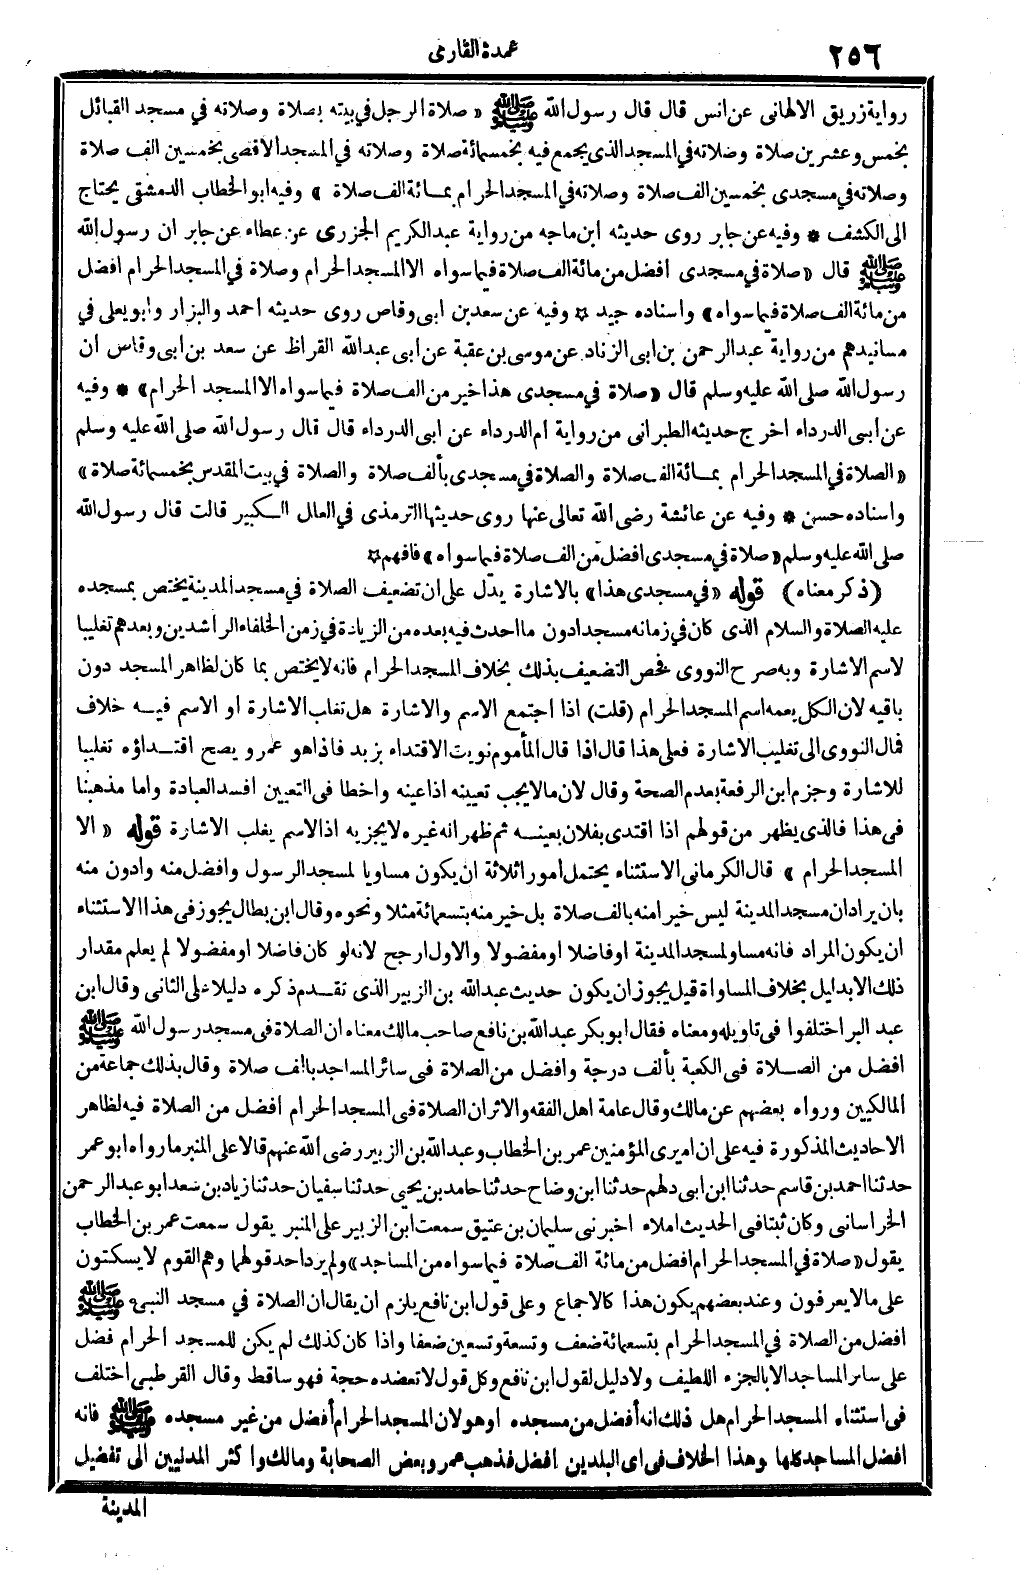 ٢٥٦ عمدة القارى
رواية زريق الالهانى عن انس قال قال رسول الله ﷺ « صلاة الرجل في بيته بصلاة وصلاته في مسجد القبائل
بخمس وعشرين صلاة وصلاته في المسجد الذى يجمع فيه بخمسمائة صلاة وصلاته في المسجد الاقصى بخمسين الف صلاة
وصلاته في مسجدى بخمسين الف صلاة وصلاته في المسجد الحرام بمائة الف صلاة » وفيه ابو الخطاب الدمشقى يحتاج
الى الكشف * وفيه عن جابر روى حديثه ابن ماجه من رواية عبد الكريم الجزرى عن عطاء عن جابر ان رسول الله
ﷺ قال « صلاة في مسجدى افضل من مائة الف صلاة فيما سواه الا المسجد الحرام وصلاة في المسجد الحرام افضل
من مائة الف صلاة فيما سواه » واسناده جيد * وفيه عن سعد بن ابى وقاص روى حديثه احمد والبزار وأبو يعلى في
مسانيدهم من رواية عبد الرحمن بن ابى الزناد عن موسى بن عقبة عن ابى عبد الله القراظ عن سعد بن ابى وقاص ان
رسول الله صلى الله عليه وسلم قال « صلاة في مسجدى هذا خير من الف صلاة فيما سواه الا المسجد الحرام » * وفيه
عن أبى الدرداء اخرج حديثه الطبرانى من رواية أم الدرداء عن ابى الدرداء قال قال رسول الله صلى الله عليه وسلم
« الصلاة في المسجد الحرام بمائة الف صلاة والصلاة في مسجدى بألف صلاة والصلاة في بيت المقدس بخمسمائة صلاة »
واسناده حسن * وفيه عن عائشة رضى الله تعالى عنها روى حديثها الترمذى في العلل الكبير قالت قال رسول الله
صلى الله عليه وسلم « صلاة في مسجدى افضل من الف صلاة فيما سواه » فافهم *
(ذكر معناه) قوله « في مسجدى هذا » بالاشارة يدل على ان تضعيف الصلاة في مسجد المدينة يختص بمسجده
عليه الصلاة والسلام الذى كان في زمانه مسجدا دون ما احدث فيه بعده من الزيادة في زمن الخلفاء الراشدين وبعدهم تغليبا
لاسم الاشارة وبه صرح النووى فخص التضعيف بذلك بخلاف المسجد الحرام فانه لا يختص بما كان لظاهر المسجد دون
باقيه لان الكل يعمه اسم المسجد الحرام (قلت) اذا اجتمع الاسم والاشارة هل تغلب الاشارة او الاسم فيه خلاف
فمال النووى الى تغليب الاشارة فعلى هذا قال اذا قال المأموم نويت الاقتداء بزيد فاذا هو عمرو يصح اقتداؤه تغليبا
للاشارة وجزم ابن الرفعة بعدم الصحة وقال لان مالا يجب تعيينه اذا عينه واخطا فى التعيين افسد العبادة واما مذهبنا
فى هذا فالذى يظهر من قولهم اذا اقتدى بفلان بعينه ثم ظهر انه غيره لا يجزيه اذ الاسم يغلب الاشارة قوله « الا
المسجد الحرام » قال الكرمانى الاستثناء يحتمل أمورا ثلاثة ان يكون مساويا لمسجد الرسول وافضل منه وادون منه
بان يراد ان مسجد المدينة ليس خيرا منه بالف صلاة بل خير منه بتسعمائة مثلا ونحوه وقال ابن بطال يجوز فى هذا الاستثناء
ان يكون المراد فانه مساو لمسجد المدينة او فاضلا او مفضولا والاول ارجح لانه لو كان فاضلا او مفضولا لم يعلم مقدار
ذلك الا بدليل بخلاف المساواة قيل يجوز ان يكون حديث عبد الله بن الزبير الذى تقدم ذكره دليلا على الثانى وقال ابن
عبد البر اختلفوا فى تاويله ومعناه فقال ابو بكر عبد الله بن نافع صاحب مالك معناه ان الصلاة فى مسجد رسول الله ﷺ
افضل من الصلاة فى الكعبة بألف درجة وافضل من الصلاة فى سائر المساجد بالف صلاة وقال بذلك جماعة من
المالكيين ورواه بعضهم عن مالك وقال عامة اهل الفقه والاثر ان الصلاة فى المسجد الحرام افضل من الصلاة فيه لظاهر
الاحاديث المذكورة فيه على ان اميرى المؤمنين عمر بن الخطاب وعبد الله بن الزبير رضى الله عنهم قالا على المنبر ما رواه ابو عمر
حدثنا احمد بن قاسم حدثنا ابن ابى دلهم حدثنا ابن وضاح حدثنا حامد بن يحيى حدثنا سفيان حدثنا زياد بن سعد ابو عبد الرحمن
الخراسانى وكان ثبتا فى الحديث املاه اخبرنى سليمان بن عتيق سمعت ابن الزبير على المنبر يقول سمعت عمر بن الخطاب
يقول « صلاة في المسجد الحرام افضل من مائة الف صلاة فيما سواه من المساجد » ولم يرد احد قولهما وهم القوم لا يسكتون
على مالا يعرفون وعند بعضهم يكون هذا كالاجماع وعلى قول ابن نافع يلزم ان يقال ان الصلاة في مسجد النبي ﷺ
افضل من الصلاة في المسجد الحرام بتسعمائة ضعف وتسعة وتسعين ضعفا واذا كان كذلك لم يكن للمسجد الحرام فضل
على سائر المساجد الا بالجزء اللطيف ولا دليل لقول ابن نافع وكل قول لا تعضده حجة فهو ساقط وقال القرطبى اختلف
فى استثناء المسجد الحرام هل ذلك انه أفضل من مسجده او هو لان المسجد الحرام أفضل من غير مسجده ﷺ فانه
افضل المساجد كلها وهذا الخلاف فى اى البلدين افضل فذهب عمر وبعض الصحابة ومالك واكثر المدنيين الى تفضيل
المدينة